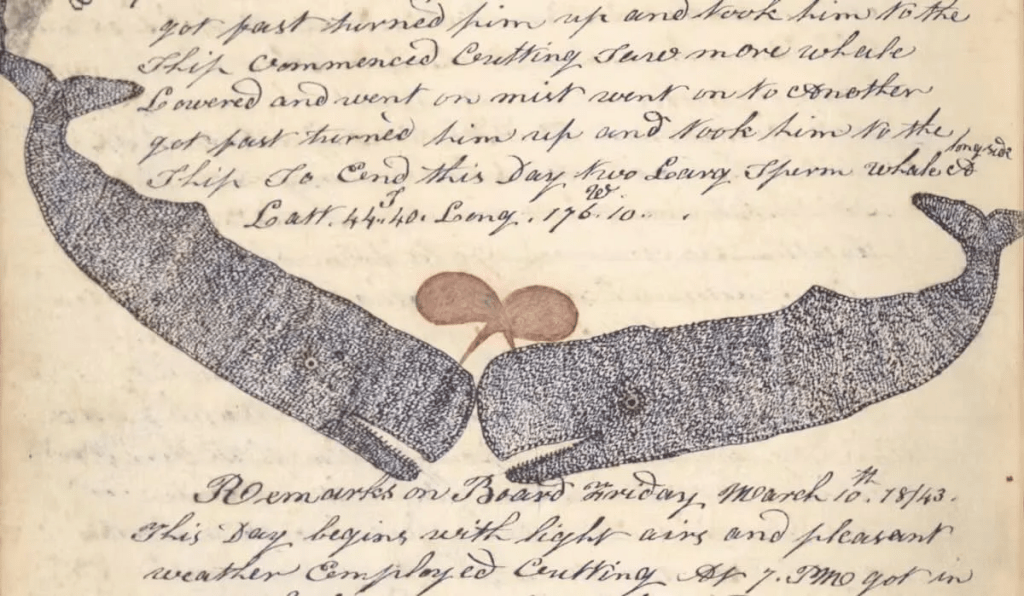 got fast turned him up and took him to the
Ship Commenced Cutting Saw more whale
Lowered and went on mist went on to Another
got fast turned him up and took him to the
Ship So Ends this Day two Larg Sperm whale
long side
Latt. 44.40. S Long. 176.10. W
Remarks on Board Friday March 10th. 1843.
This Day begins with light airs and pleasant
weather Employed Cutting At 7. PM got in